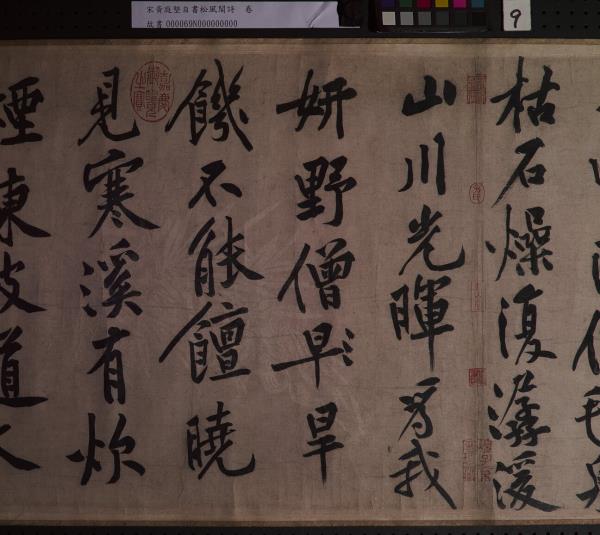 宋黃庭堅自書松風閣詩 卷
故書 000069N000000000
9
枯石燥復潺湲
山川光暉為我
妍野僧早旱
饑不能饘曉
見寒溪有炊
煙東坡道人
嘉慶御覽之寶